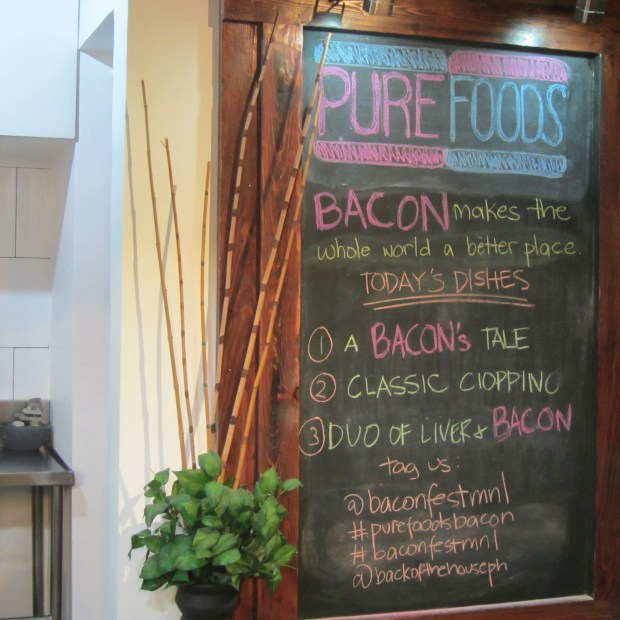 PURE FOODS
BACON makes the
whole world a better place.
TODAY'S DISHES
1 A BACON's TALE
2 CLASSIC CIOPPINO
3 DUO OF LIVER & BACON
tag us:
@baconfestmnl
#purefoodsbacon
#baconfestmnl
@backofthehouseph